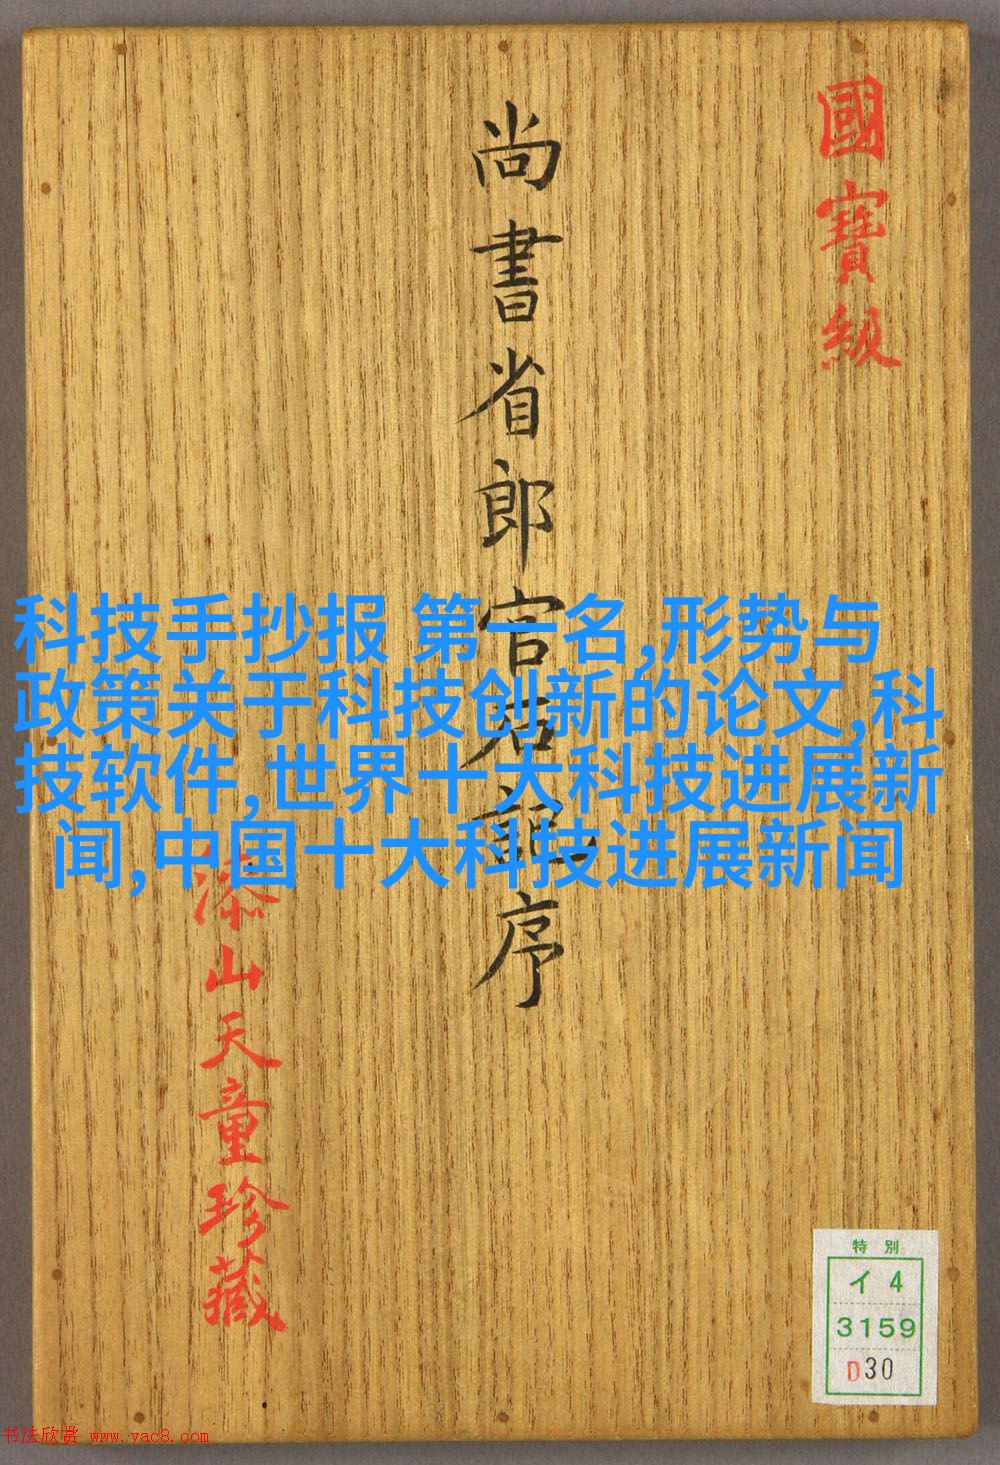 國寶級
尚書省郎官石記序
漆山天童珍藏
科技手抄报 第一名,形势与
政策关于科技创新的论文,科
技软件,世界十大科技进展新
闻,中国十大科技进展新闻
特別
イ 4
3159
D30
书法欣赏 www.yac8.com